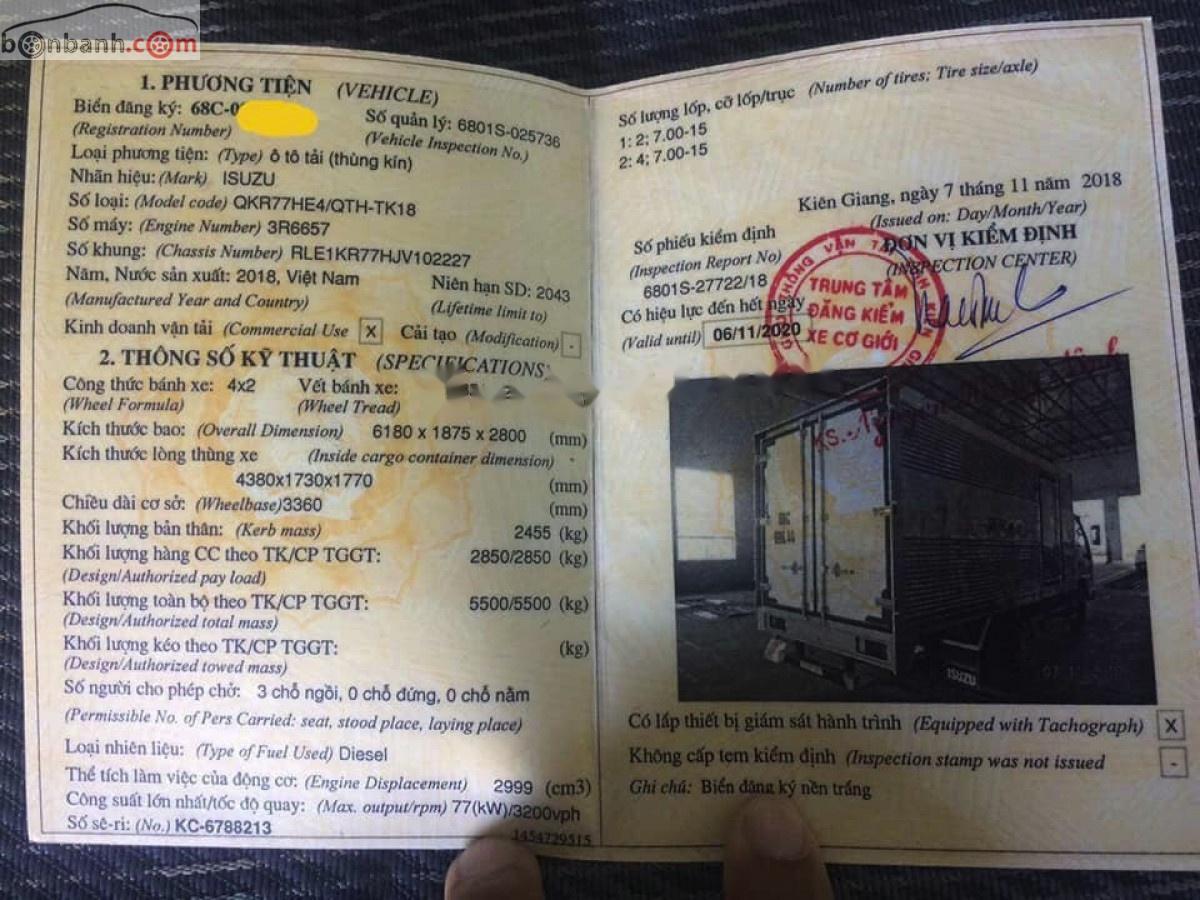 bonbanh.com
1. PHƯƠNG TIỆN (VEHICLE)
Biển đăng ký: 68C-0
(Registration Number)
Số quản lý: 6801S-025736
(Vehicle Inspection No.)
Loại phương tiện: (Type) ô tô tải (thùng kín)
Nhãn hiệu: (Mark) ISUZU
Số loại: (Model code) QKR77HE4/QTH-TK18
Số máy: (Engine Number) 3R6657
Số khung: (Chassis Number) RLE1KR77HJV102227
Năm, Nước sản xuất: 2018, Việt Nam
(Manufactured Year and Country)
Niên hạn SD: 2043
(Lifetime limit to)
Kinh doanh vận tải (Commercial Use X Cải tạo (Modification) -
2. THÔNG SỐ KỸ THUẬT (SPECIFICATIONS)
Công thức bánh xe: 4x2 Vết bánh xe:
(Wheel Formula) (Wheel Tread)
Kích thước bao: (Overall Dimension) 6180 x 1875 x 2800 (mm)
Kích thước lòng thùng xe (Inside cargo container dimension)
4380x1730x1770 (mm)
Chiều dài cơ sở: (Wheelbase)3360 (mm)
Khối lượng bản thân: (Kerb mass) 2455 (kg)
Khối lượng hàng CC theo TK/CP TGGT: 2850/2850 (kg)
(Design/Authorized pay load)
Khối lượng toàn bộ theo TK/CP TGGT: 5500/5500 (kg)
(Design/Authorized total mass)
Khối lượng kéo theo TK/CP TGGT: (kg)
(Design/Authorized towed mass)
Số người cho phép chở: 3 chỗ ngồi, 0 chỗ đứng, 0 chỗ nằm
(Permissible No. of Pers Carried: seat, stood place, laying place)
Loại nhiên liệu: (Type of Fuel Used) Diesel
Thể tích làm việc của động cơ: (Engine Displacement) 2999 (cm3)
Công suất lớn nhất/tốc độ quay: (Max. output/rpm) 77(kW)/3200vph
Số sê-ri: (No.) KC-6788213
1454729515
Số lượng lốp, cỡ lốp/trục (Number of tires; Tire size/axle)
1: 2; 7.00-15
2: 4; 7.00-15
Kiên Giang, ngày 7 tháng 11 năm 2018
(Issued on: Day/Month/Year)
Số phiếu kiểm định
(Inspection Report No)
6801S-27722/18
ĐƠN VỊ KIỂM ĐỊNH
(INSPECTION CENTER)
Có hiệu lực đến hết ngày
(Valid until) 06/11/2020
TRUNG TÂM
ĐĂNG KIỂM
XE CƠ GIỚI
KS.
ISUZU
Có lắp thiết bị giám sát hành trình (Equipped with Tachograph) X
Không cấp tem kiểm định (Inspection stamp was not issued -
Ghi chú: Biển đăng ký nền trắng